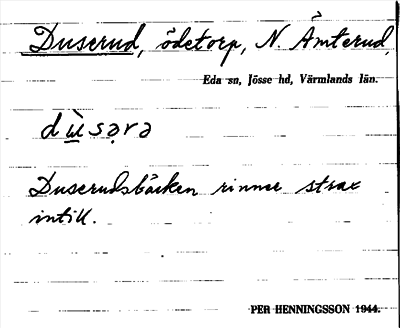 Duserud, ödetorp, N. Åmterud,
Eda sn, Jösse hd, Värmlands län.
dùsərə
Duserudsbäcken rinner strax
intill.
PER HENNINGSSON 1944.